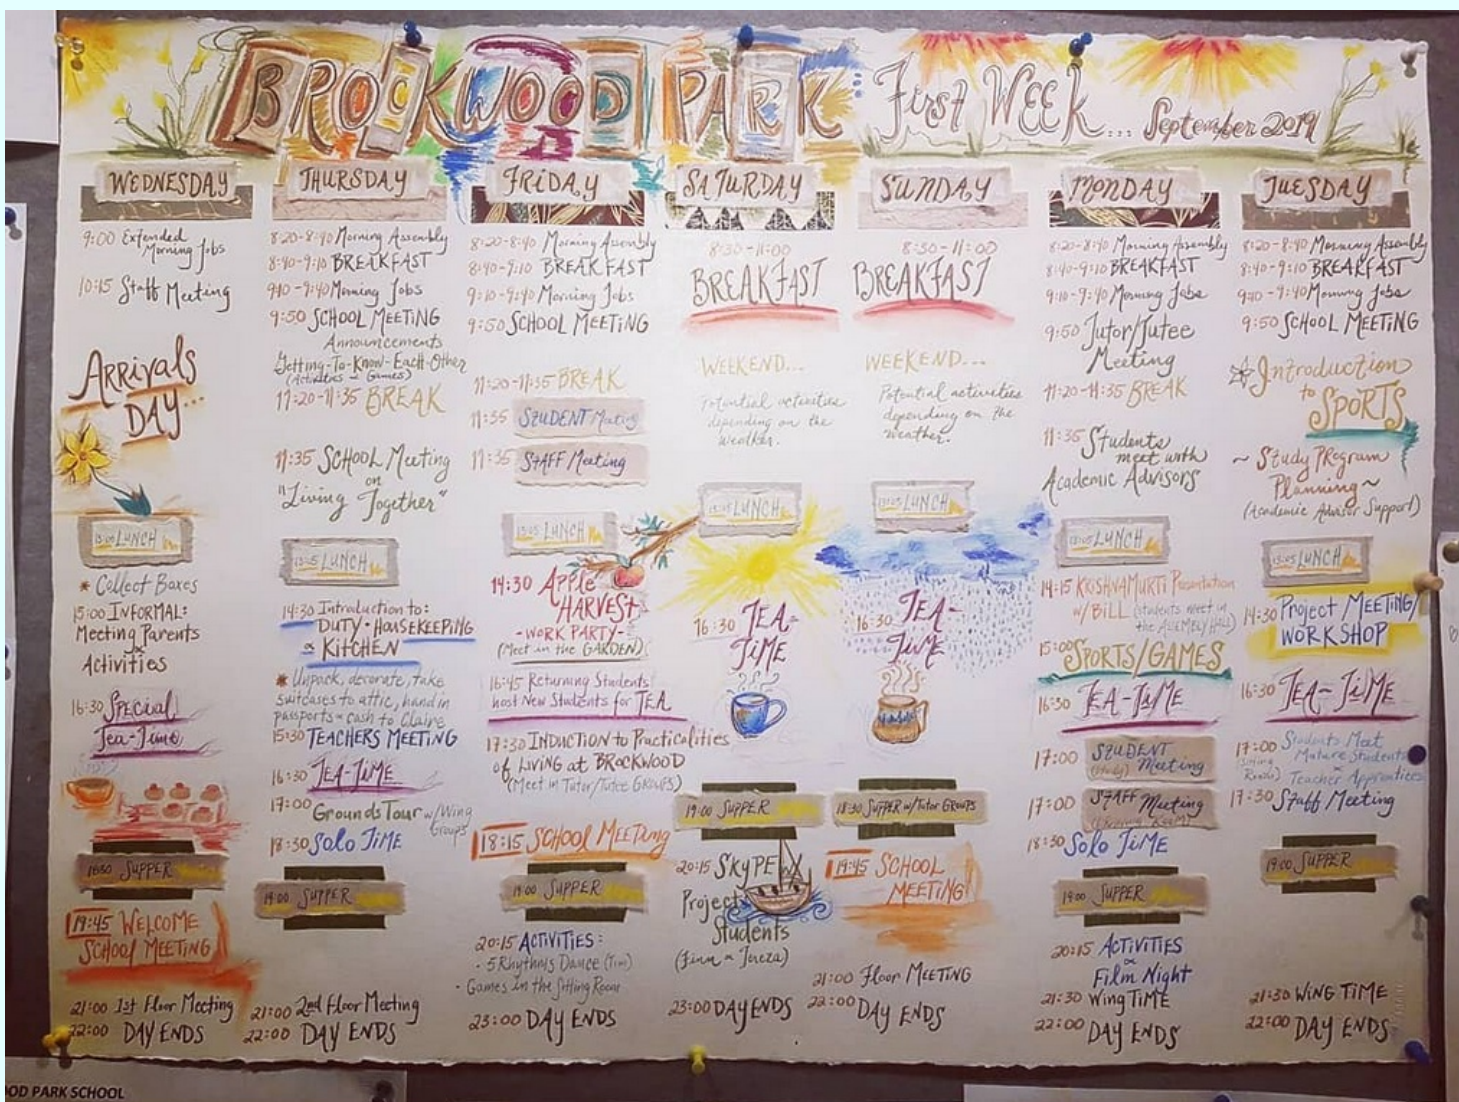 BROCKWOOD PARK: First WEEK... September 2019
WEDNESDAY
9:00 Extended
Morning Jobs
10:15 Staff Meeting
ARRIVALS
DAY...
13:05 LUNCH
* Collect Boxes
15:00 INFORMAL:
Meeting Parents
Activities
16:30 SPECIAL
Tea-Time
SUPPER
19:45 WELCOME
SCHOOL MEETING
21:00 1st Floor Meeting
22:00 DAY ENDS
THURSDAY
8:20-8:40 Morning Assembly
8:40-9:10 BREAKFAST
9:10-9:40 Morning Jobs
9:50 SCHOOL MEETING
Announcements
Getting-To-Know-Each-Other
(Activities & Games)
11:20-11:35 BREAK
11:35 SCHOOL Meeting
on
"Living Together"
13:05 LUNCH
14:30 Introduction to:
DUTY · HOUSEKEEPING
& KITCHEN
* Unpack, decorate, take
suitcases to attic, hand in
passports & cash to Claire
15:30 TEACHERS MEETING
16:30 TEA-TIME
17:00 Grounds Tour w/Wing
Groups
18:30 SOLO TIME
19:00 SUPPER
21:00 2nd Floor Meeting
22:00 DAY ENDS
FRIDAY
8:20-8:40 Morning Assembly
8:40-9:10 BREAKFAST
9:10-9:40 Morning Jobs
9:50 SCHOOL MEETING
11:20-11:35 BREAK
11:35 STUDENT Meeting
11:35 STAFF Meeting
13:05 LUNCH
14:30 APPLE
HARVEST
-WORK PARTY-
(Meet in the GARDEN)
16:45 Returning Students
host New Students for TEA
17:30 INDUCTION to Practicalities
of LIVING at BROCKWOOD
(Meet in Tutor/Tutee GROUPS)
18:15 SCHOOL MEETING
19:00 SUPPER
20:15 ACTIVITIES:
· 5Rhythms Dance (Tom)
· Games in the Sitting Room
23:00 DAY ENDS
SATURDAY
8:30-11:00
BREAKFAST
WEEKEND...
Potential activities
depending on the
weather.
13:05 LUNCH
16:30 TEA-
TIME
19:00 SUPPER
20:15 SKYPE
Project
Students
(Finn & Tereza)
23:00 DAY ENDS
SUNDAY
8:30-11:00
BREAKFAST
WEEKEND...
Potential activities
depending on the
weather.
13:05 LUNCH
16:30 TEA-
TIME
18:30 SUPPER w/Tutor GROUPS
19:45 SCHOOL
MEETING!
21:00 Floor MEETING
22:00 DAY ENDS
MONDAY
8:20-8:40 Morning Assembly
8:40-9:10 BREAKFAST
9:10-9:40 Morning Jobs
9:50 Tutor/Tutee
Meeting
11:20-11:35 BREAK
11:35 Students
meet with
Academic Advisors
13:05 LUNCH
14:15 KRISHNAMURTI Presentation
w/BILL (students meet in
the ASSEMBLY HALL)
15:00 SPORTS/GAMES
16:30 TEA-TIME
17:00 STUDENT
Meeting
17:00 STAFF Meeting
18:30 SOLO TIME
19:00 SUPPER
20:15 ACTIVITIES
&
Film Night
21:30 WING TIME
22:00 DAY ENDS
TUESDAY
8:20-8:40 Morning Assembly
8:40-9:10 BREAKFAST
9:10-9:40 Morning Jobs
9:50 SCHOOL MEETING
Introduction
to
SPORTS
~ Study PROGRAM
Planning ~
(Academic Advisor Support)
13:05 LUNCH
14:30 Project MEETING/
WORKSHOP
16:30 TEA-TIME
17:00 Students Meet
Mature Students
& Teacher Apprentices
17:30 Staff Meeting
19:00 SUPPER
21:30 WING TIME
22:00 DAY ENDS
OOD PARK SCHOOL